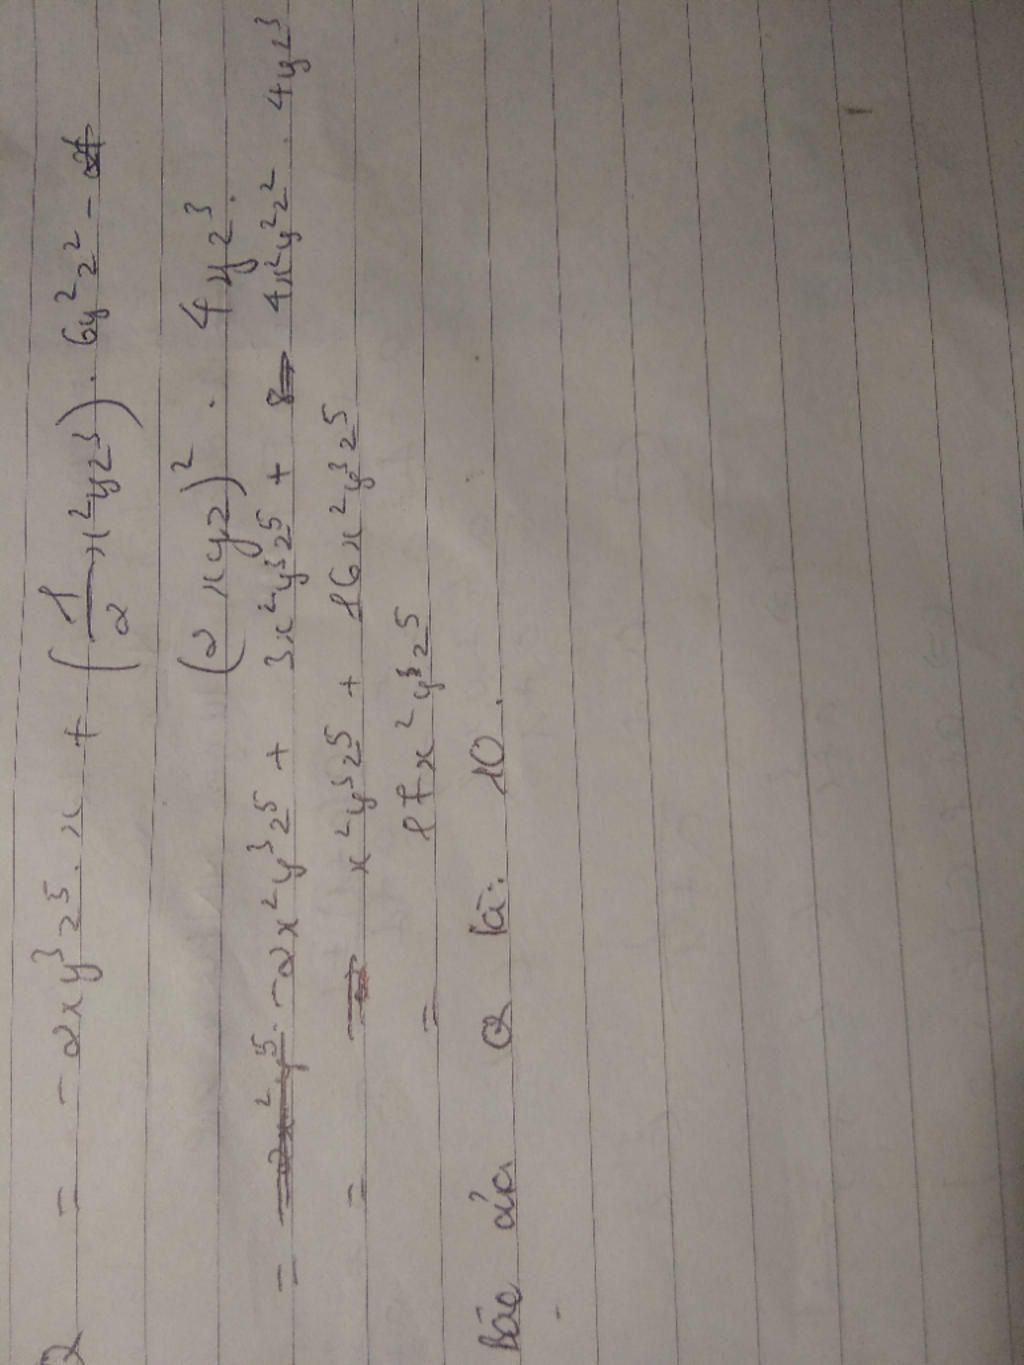 Q = -2xy³z⁵. x + (1/2 x²yz³). 6y²z² -
(2xyz)² . 4yz³.
= -2x²y³z⁵ + 3x²y³z⁵ + 4x²y²z² . 4yz³
= x²y³z⁵ + 16x²y³z⁵
= 17x²y³z⁵
Bậc của Q là: 10.